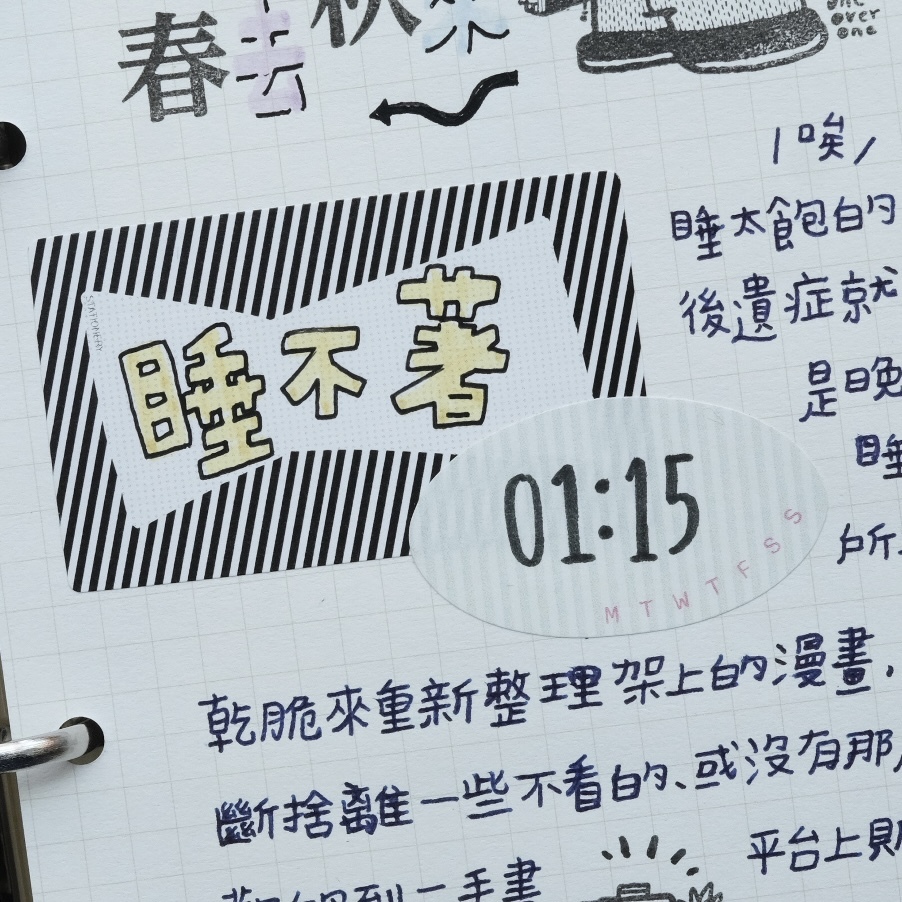 春去秋來
one
over
one
唉
睡太飽的
後遺症就
是晚
睡
所
STATIONERY
睡不著
01:15
M T W T F S S
乾脆來重新整理架上的漫畫,
斷捨離一些不看的、或沒有那
平台上
到二手書